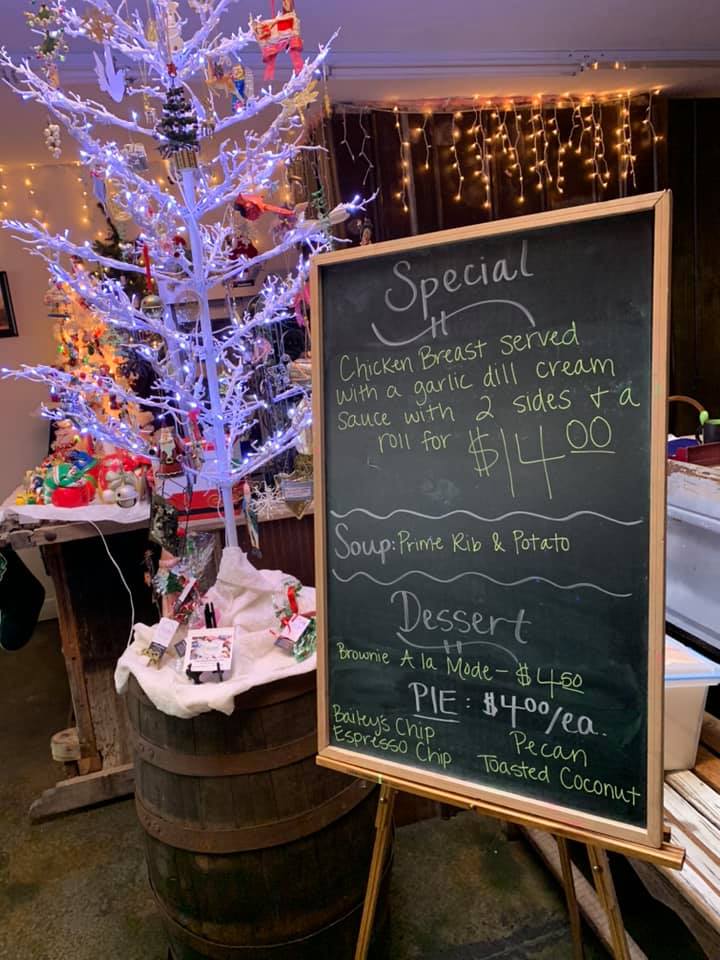 Special
Chicken Breast served
with a garlic dill cream
sauce with 2 sides & a
roll for $14.00
Soup: Prime Rib & Potato
Dessert
Brownie A la Mode - $4.50
PIE: $4.00/ea.
Bailey's Chip
Pecan
Espresso Chip
Toasted Coconut